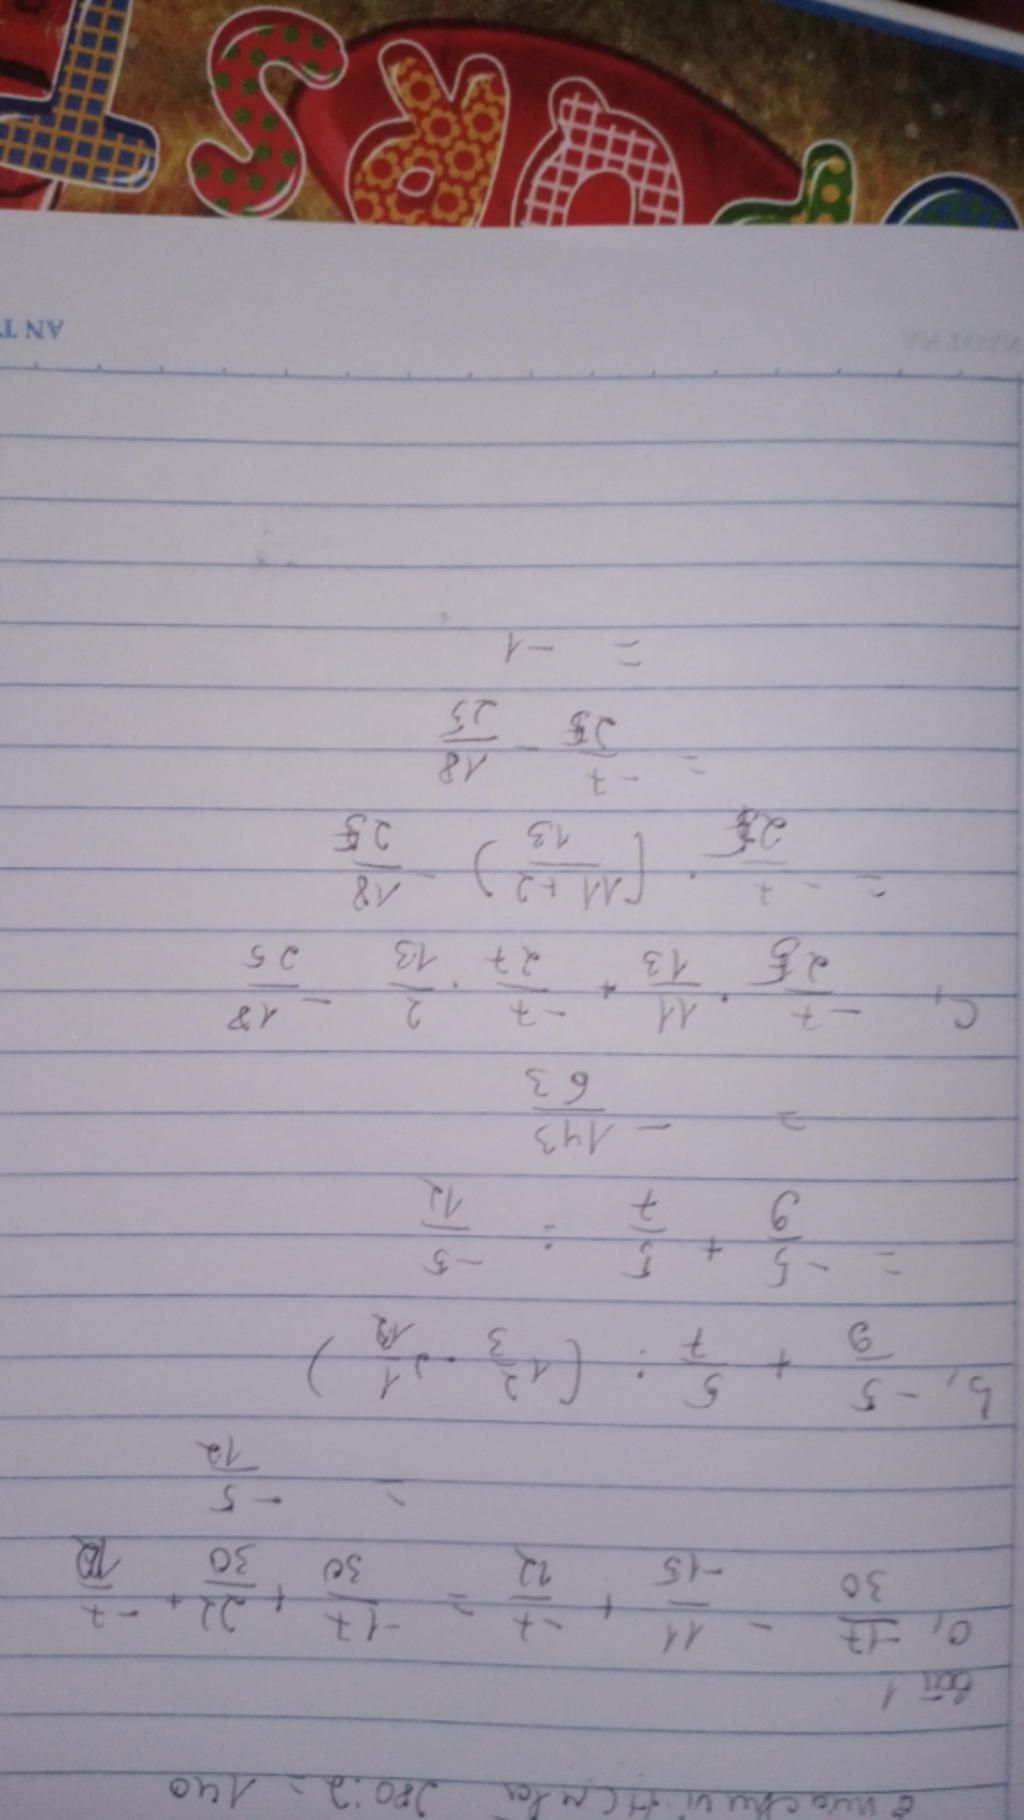 280:2 = 140
Bài 1
a, -17/30 - 11/-15 + -7/12 = -17/30 + 22/30 + -7/12
= -5/12
b, -5/9 + 5/7 : (1 2/3 - 2 1/12)
= -5/9 + 5/7 : -5/12
= -143/63
C, -7/25 . 11/13 + -7/27 . 2/13 - 18/25
= -7/25 . (11+2/13) - 18/25
= -7/25 - 18/25
= -1